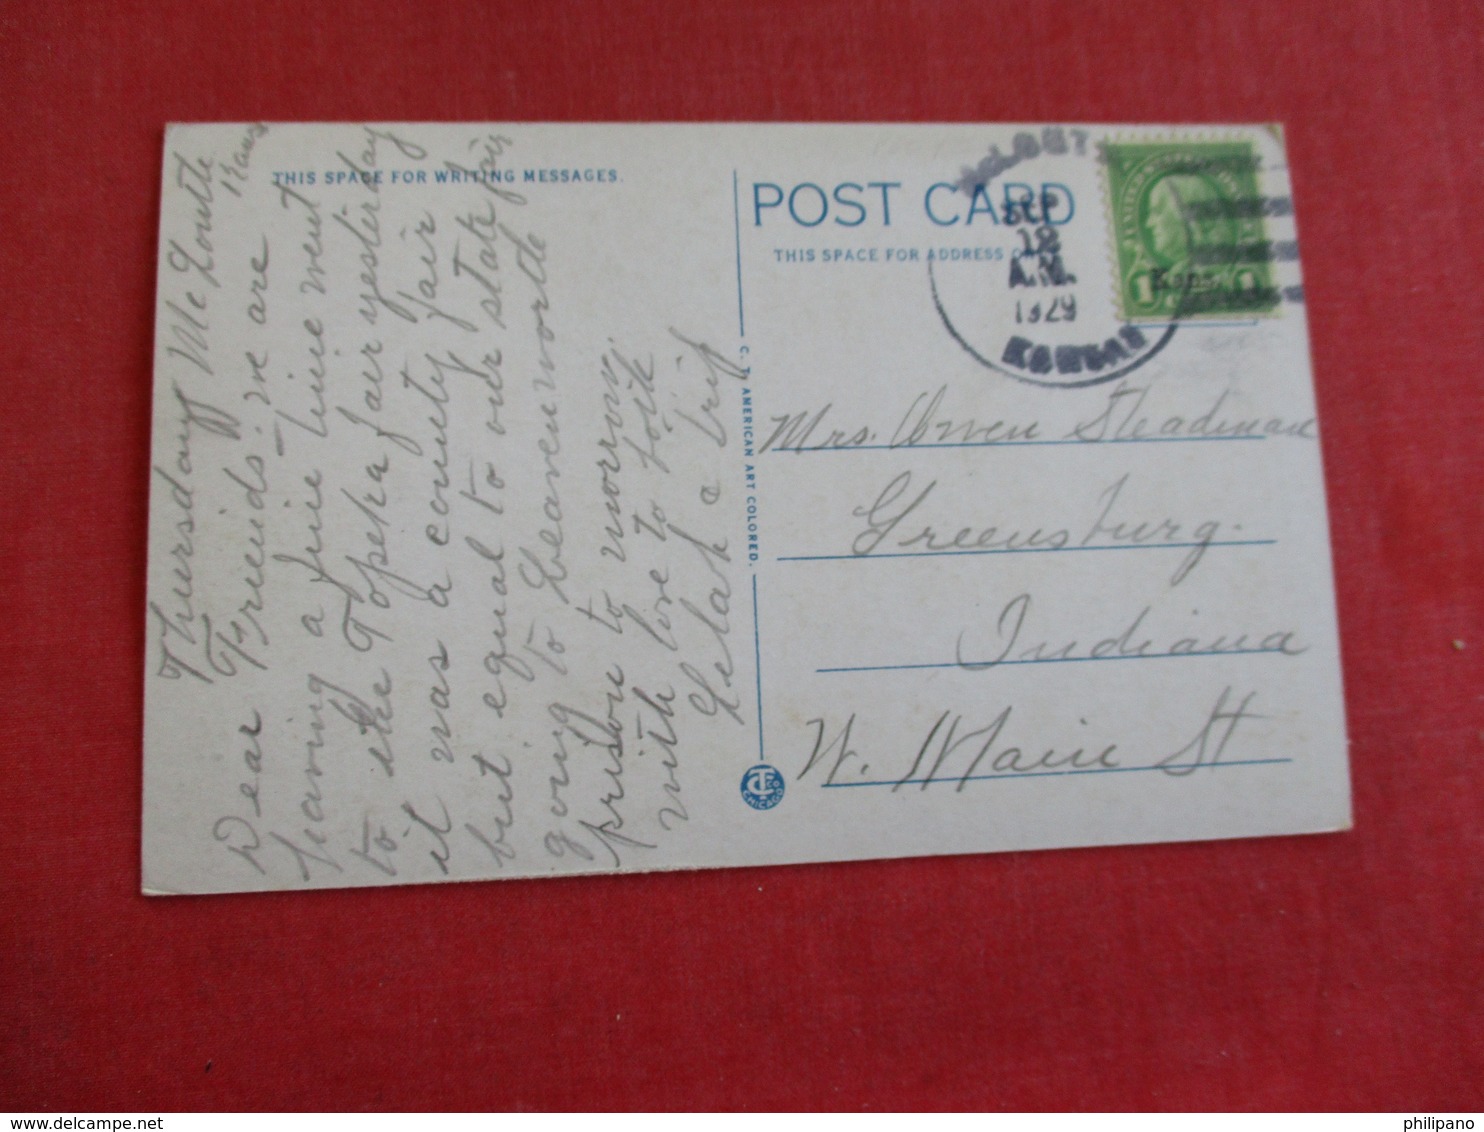 THIS SPACE FOR WRITING MESSAGES.
Thursday Mc Louth
Kans
Dear Friends:- we are
having a fine time went
to the Topeka fair yesterday
it was a county fair
but equal to our state fair
going to Leavenworth
prison to morrow.
with love to folk
Lelah & Trip
C. T. AMERICAN ART COLORED.
CT CO CHICAGO
POST CARD
THIS SPACE FOR ADDRESS
McLOUTH
SEP
18
A.M.
1929
KANSAS
1 Kans. 1
Mrs. Owen Steadman
Greensburg.
Indiana
W. Main St
philipano